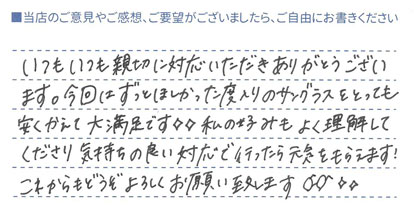 ■当店のご意見やご感想、ご要望がございましたら、ご自由にお書きください
いつもいつも親切に対応いただきありがとうござい
ます。今回はずっとほしかった度入りのサングラスをとっても
安くかえて大満足です◇◇私の好みもよく理解して
くださり気持ちの良い対応で行ったら元気をもらえます!
これからもどうぞよろしくお願い致します ◇◇